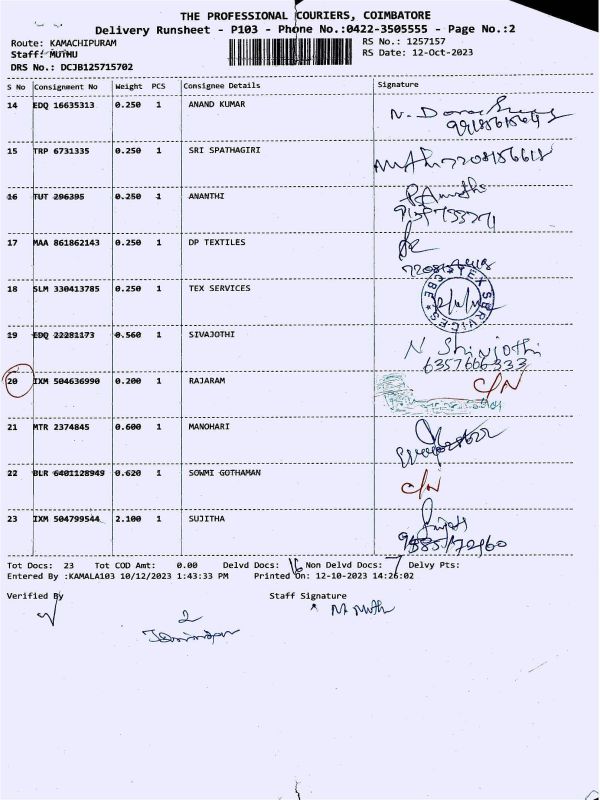 THE PROFESSIONAL COURIERS, COIMBATORE
Delivery Runsheet - P103 - Phone No.:0422-3505555 - Page No.:2
Route: KAMACHIPURAM RS No.: 1257157
Staff: MUTHU RS Date: 12-Oct-2023
DRS No.: DCJB125715702
S No Consignment No Weight PCS Consignee Details Signature
14 EDQ 16635313 0.250 1 ANAND KUMAR
15 TRP 6731335 0.250 1 SRI SPATHAGIRI
16 TUT 296395 0.250 1 ANANTHI
17 MAA 861862143 0.250 1 DP TEXTILES
18 SLM 330413785 0.250 1 TEX SERVICES TEX SERVICES CBE
19 EDQ 22281173 0.560 1 SIVAJOTHI N Shivjothi
6357666333
20 IXM 504636990 0.200 1 RAJARAM C/N
21 MTR 2374845 0.600 1 MANOHARI
22 BLR 6401128949 0.620 1 SOWMI GOTHAMAN C/N
23 IXM 504799544 2.100 1 SUJITHA
Tot Docs: 23 Tot COD Amt: 0.00 Delvd Docs: 16 Non Delvd Docs: 7 Delvy Pts:
Entered By :KAMALA103 10/12/2023 1:43:33 PM Printed On: 12-10-2023 14:26:02
Verified By Staff Signature
2 M. Muth